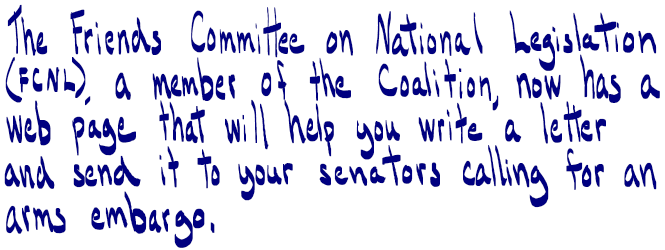 The Friends Committee on National Legislation
(FCNL), a member of the Coalition, now has a
web page that will help you write a letter
and send it to your senators calling for an
arms embargo.